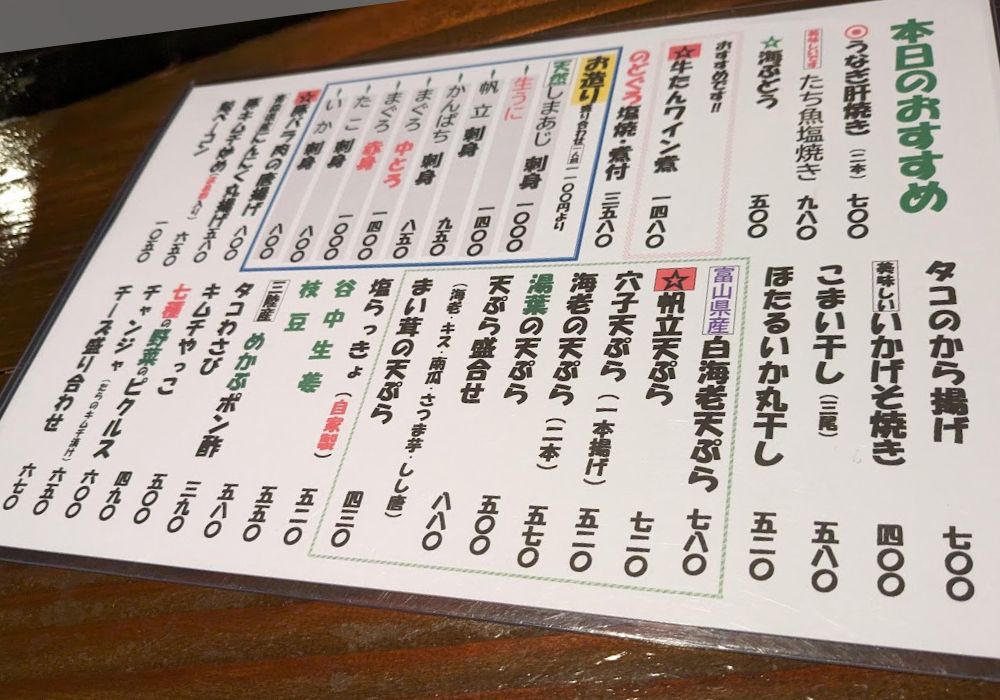 本日のおすすめ
◎うなぎ肝焼き（二本） 七〇〇
美味しいです たち魚塩焼き 九八〇
☆海ぶどう 五〇〇
おすすめです!!
☆牛たんワイン煮 一四八〇
のどぐろ塩焼・煮付 三五八〇
お造り 盛り合わせ 一人前 一一〇〇円より
天然しまあじ 刺身 一〇〇〇
生うに 一四〇〇
帆立 刺身 九五〇
かんぱち 刺身 八五〇
まぐろ 中とろ 一四〇〇
まぐろ 赤身 一〇〇〇
たこ 刺身 八〇〇
いか 刺身 八〇〇
☆豚バラ肉の唐揚げ 八〇〇
にんにく丸揚げ 五八〇
豚キムチ炒め 六五〇
ベーコン 一〇五〇
タコのから揚げ 七〇〇
美味しい いかげそ焼き 四〇〇
こまい干し（三尾） 五八〇
ほたるいか丸干し 五二〇
富山県産 白海老天ぷら 七八〇
☆帆立天ぷら 七二〇
穴子天ぷら（一本揚げ） 五二〇
海老の天ぷら（二本） 五七〇
湯葉の天ぷら 五〇〇
天ぷら盛合せ 八八〇
（海老・キス・南瓜・さつま芋・しし唐）
まい茸の天ぷら 四二〇
塩らっきょ（自家製） 五二〇
谷中生姜 五五〇
枝豆 五八〇
三陸産 めかぶポン酢 三九〇
タコわさび 五〇〇
キムチやっこ 四九〇
七種の野菜のピクルス 六〇〇
チャンジャ（たらのキムチ漬け） 六五〇
チーズ盛り合わせ 六七〇